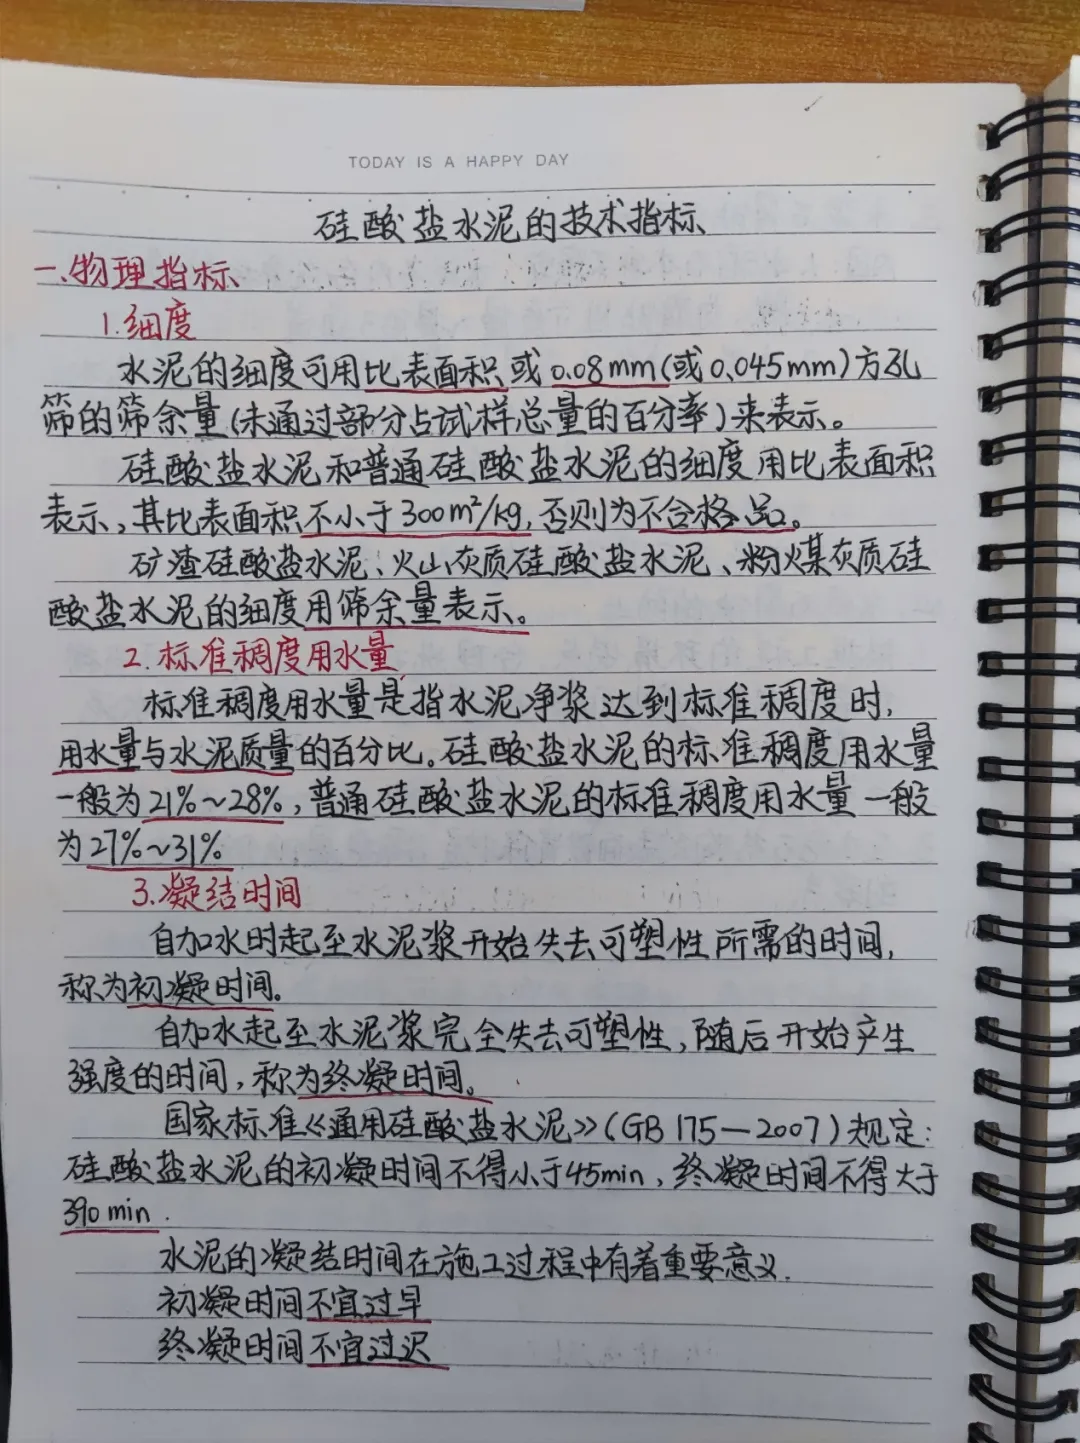 TODAY IS A HAPPY DAY
硅酸盐水泥的技术指标
一、物理指标
1.细度
水泥的细度可用比表面积或0.08mm(或0.045mm)方孔
筛的筛余量(未通过部分占试样总量的百分率)来表示。
硅酸盐水泥和普通硅酸盐水泥的细度用比表面积
表示,其比表面积不小于300m²/kg,否则为不合格品。
矿渣硅酸盐水泥、火山灰质硅酸盐水泥、粉煤灰质硅
酸盐水泥的细度用筛余量表示。
2.标准稠度用水量
标准稠度用水量是指水泥净浆达到标准稠度时,
用水量与水泥质量的百分比。硅酸盐水泥的标准稠度用水量
一般为21%~28%,普通硅酸盐水泥的标准稠度用水量一般
为27%~31%
3.凝结时间
自加水时起至水泥浆开始失去可塑性所需的时间,
称为初凝时间。
自加水起至水泥浆完全失去可塑性,随后开始产生
强度的时间,称为终凝时间。
国家标准《通用硅酸盐水泥》(GB 175—2007)规定:
硅酸盐水泥的初凝时间不得小于45min,终凝时间不得大于
390min.
水泥的凝结时间在施工过程中有着重要意义.
初凝时间不宜过早
终凝时间不宜过迟